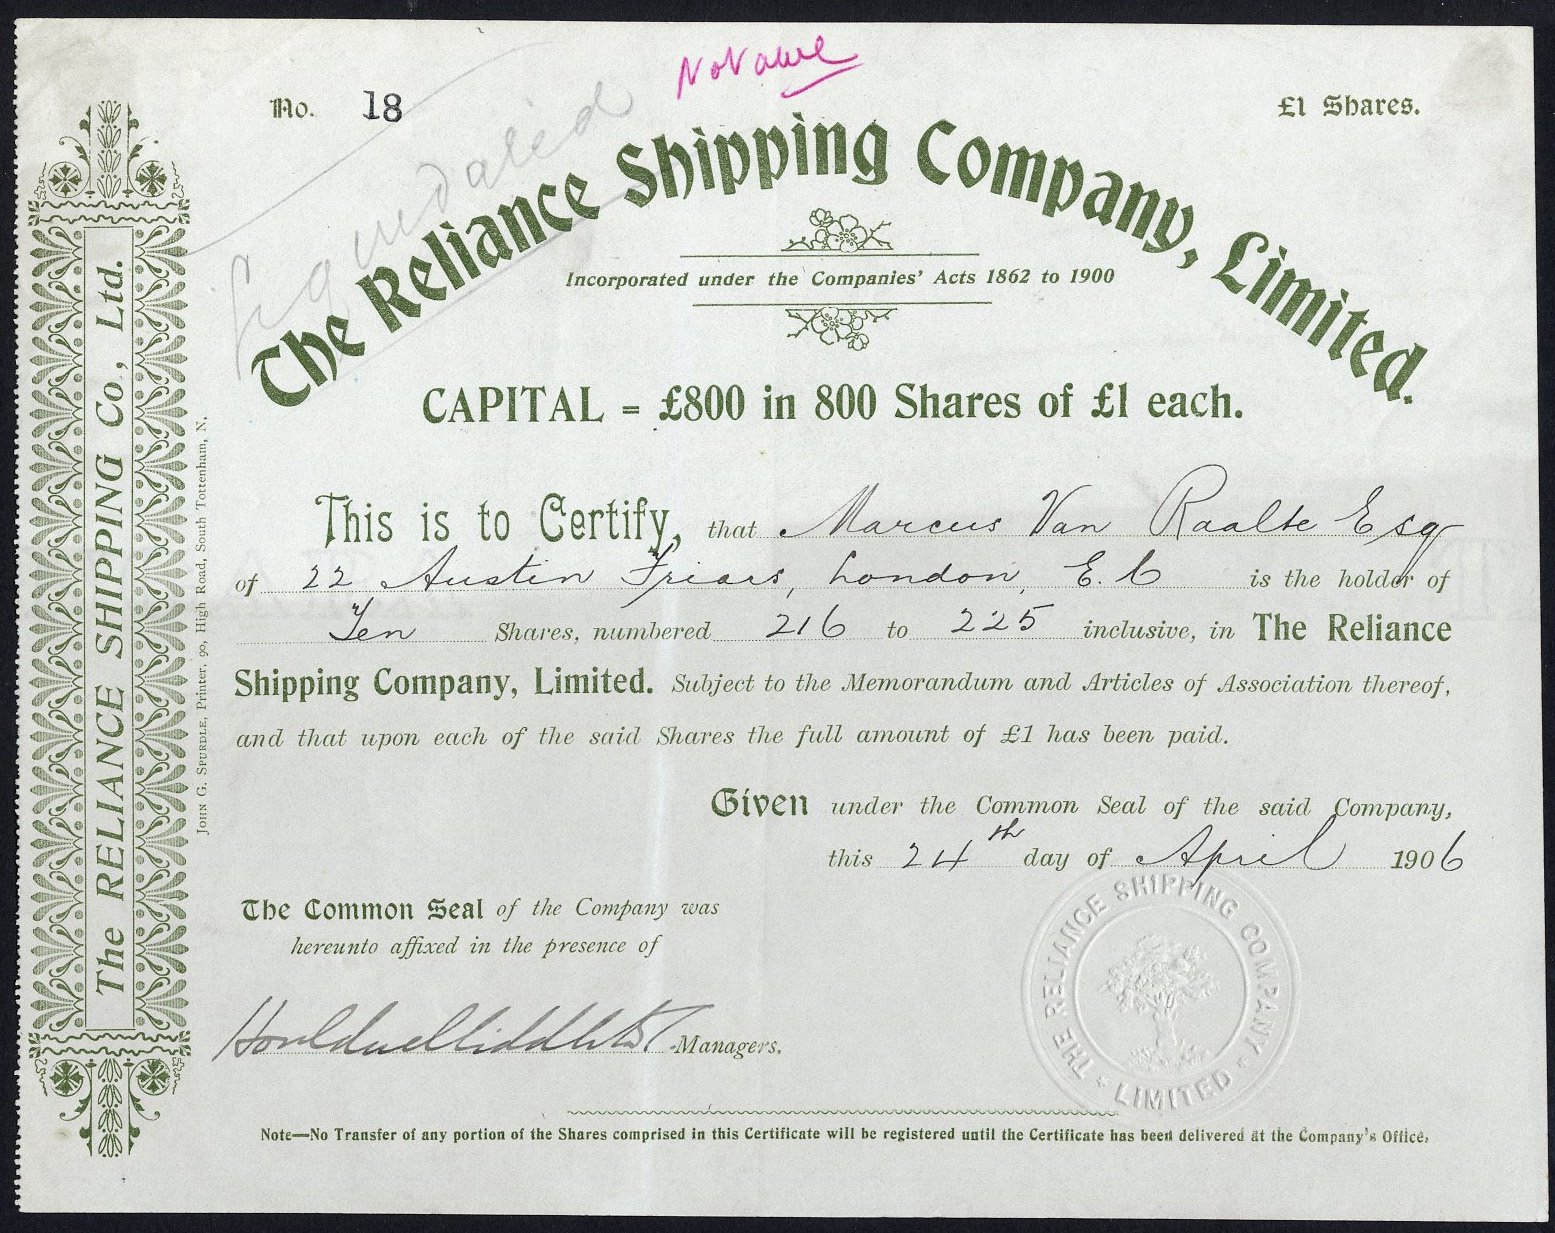 No Value
No. 18
£1 Shares.
Liquidated
The Reliance Shipping Company, Limited.
Incorporated under the Companies' Acts 1862 to 1900
CAPITAL = £800 in 800 Shares of £1 each.
This is to Certify, that Marcus Van Raalte Esq
of 22 Austin Friars, London, E.C is the holder of
Ten Shares, numbered 216 to 225 inclusive, in The Reliance
Shipping Company, Limited. Subject to the Memorandum and Articles of Association thereof,
and that upon each of the said Shares the full amount of £1 has been paid.
Given under the Common Seal of the said Company,
this 24th day of April 1906
The Common Seal of the Company was
hereunto affixed in the presence of
Managers.
THE RELIANCE SHIPPING COMPANY LIMITED
Note—No Transfer of any portion of the Shares comprised in this Certificate will be registered until the Certificate has been delivered at the Company's Office.
The RELIANCE SHIPPING Co., Ltd.
JOHN G. SPURDLE, Printer, 90, High Road, South Tottenham, N.